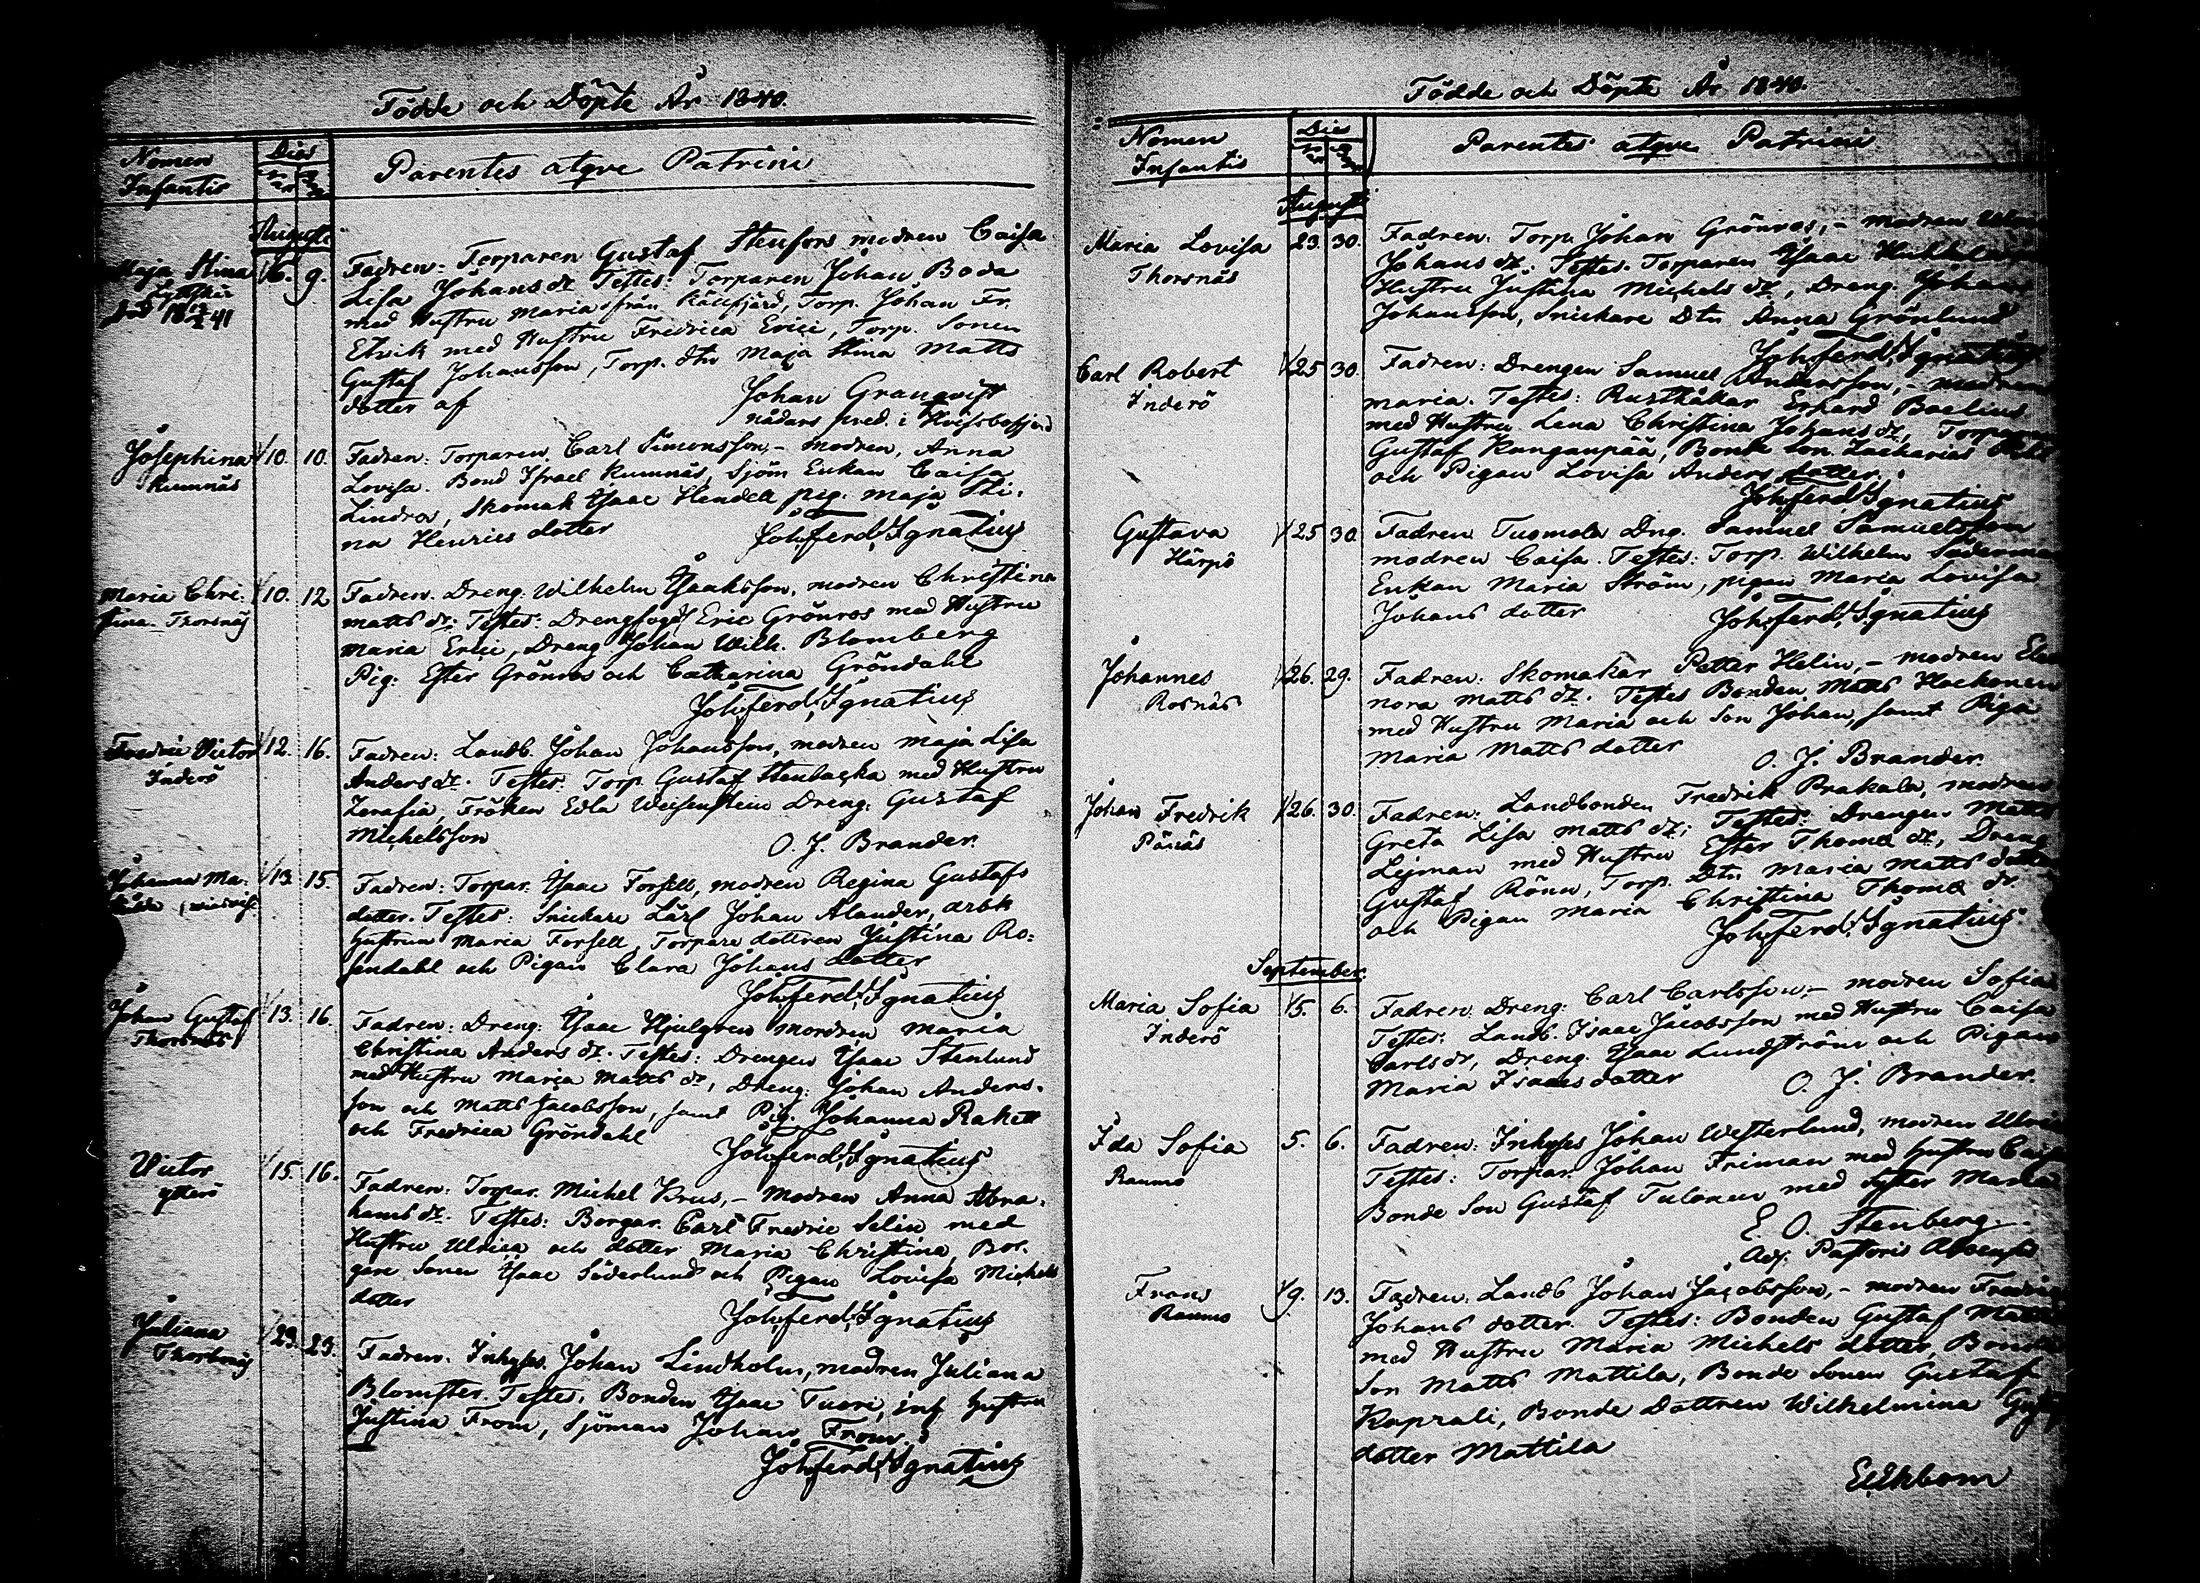 Födde och Döpte År 1840.
Nomen Infantis
Dies
Parentes atqve Patrini
Augusti
Maja Stina
6. 9.
Fadren: Torparen Gustaf Stenfors modren Caisa
Lisa Johans dr Testes: Torparen Johan Boda
med Hustru Maria från Källfjärd, Torp. Johan Fr.
Etvik med Hustru Fredrica Erici, Torp. Sonen
Gustaf Johansson, Torp. dtr Maja Stina Matts
dotter af Johan Granqvist
nådårs pred. i Hvifsbofjerd
Josephina
Rumnäs
10. 10.
Fadren: Torparen Carl Simonsson, – modren, Anna
Lovisa. Bond Israel Rumnäs, Sjöm Enkan Caisa
Lindros, Skomak Isaac Hendell pig. Maja Sti-
na Henrics dotter Joh. Ferd. Ignatius
Maria Chri-
stina Thorsnäs
10. 12
Fadren. Dreng. Wilhelm Isaksson, modren Christina
Matts dr: Testes: Drengfogd Eric Grönros med Hustru
Maria Erici, Dreng Johan Wilh. Blomberg
Pig: Ester Grönros och Catharina Gröndahl
Joh. Ferd. Ignatius
Fredric Victor
Inderö
12. 16.
Fadren: Landb. Johan Johansson, modren Maja Lisa
Anders dr. Testes. Torp. Gustaf Stenbacka med Hustru
Serafia, Fröken Edla Weisenstein Dreng: Gustaf
Michelsson O. J. Brander.
Johanna Ma-
13. 15.
Fadren: Torpar. Isaac Forsell, modren Regina Gustafs
dotter. Testes: Snickare Lärl Johan Alander, arbk
hustrun Maria Forsell, Torpare dottren Justina Ro-
sendahl och Pigan Clara Johans dotter
Joh. Ferd. Ignatius
Johan Gustaf
Thorsnäs
13. 16.
Fadren: Dreng: Isaac Hjulgren modren Maria
Christina Anders dr. Testes: Drengen Isaac Stenlund
med Hustru Maria Matts dr, Dreng: Johan Anders-
son och Matts Jacobsson, samt Pig. Johanna Rakell
och Fredrica Gröndahl Joh. Ferd. Ignatius
Victor
ytterö
15. 16.
Fadren: Torpar. Michel Krus, – Modren Anna Abra-
hams dr. Testes: Borgar. Carl Fredric Selin med
Hustru Ulrica och dotter Maria Christina, Bor-
gare Sonen Isaac Söderlund och Pigan Lovisa Michels
dotter Joh. Ferd. Ignatius
Juliana
Thorsnäs
23. 23.
Fadren. Inhyses Johan Lindholm, modren Juliana
Blomster. Testes: Bonden Isaac Tuori, inh hustru
Justina From, Sjöman Johan From.
Joh. Ferd. Ignatius
Födde och Döpte År 1840.
Nomen Infantis
Die
Parentes atqve Patrini
Augusti
Maria Lovisa
Thorsnäs
23. 30.
Fadren: Torp. Johan Grönros, – modren
Johans dr: Testes. Torparen Isaac
Hustru Justina Michels dr, Dreng. Johan
Johansson, Snickare Dtr Anna Grönlund
Joh. Ferd. Ignatius
Carl Robert
Inderö
25 30.
Fadren: Drengen Samuel Andersson, – modren
Maria. Testes: Rusthållar Erhard Boelius
med Hustru Lena Christina Johans dr, Torparen
Gustaf Kunganpää, Bonde Son Zacharias
och Pigan Lovisa Anders dotter.
Joh. Ferd. Ignatius
Gustava
Härpö
25 30.
Fadren Tuomola Dng. Samuel Samuelsson
modren Caisa. Testes: Torp. Wilhelm Söderman
Enkan Maria Ström, pigan Maria Lovisa
Johans dotter Joh. Ferd. Ignatius
Johannes
Rosnäs
26. 29.
Fadren: Skomakar Petter Helin, – modren Eleo
nora Matts dr. Testes Bonden Matts Hackonen
med Hustru Maria och Son Johan, samt Piga
Maria Matts dotter O. J. Brander.
Johan Fredrik
Pänäs
26. 30.
Fadren: Landbonden Fredrik Prakala, modren
Greta Lisa Matts dr; Testes: Drengen Matts
Lejman med Hustru Ester Thomæ dr, Dreng
Gustaf Rönn, Torp. Dtr Maria Matts dotter
och Pigan Maria Christina Thomæ dr.
Joh. Ferd. Ignatius
September.
Maria Sofia
Inderö
5. 6.
Fadren. Dreng: Carl Carlsson, – modren Sofia
Testes: Landb. Isaac Jacobsson med Hustru Caisa
Carls dr, Dreng. Isaac Lundström och Pigan
Maria Isaacs dotter O. J. Brander.
Ida Sofia
Raumo
5. 6.
Fadren: Inhyses Johan Westerlund, modren Ulrica
Testes: Torpar. Johan Friman med hustru Caisa
Bonde Son Gustaf Tulonen med Syster Maria
E. O. Stenberg.
Adj. Pastoris Absentis
Frans
Raumo
9. 13.
Fadren. Landb Johan Jacobsson, – modren Fredrica
Johans dotter. Testes: Bonden Gustaf Mattila
med Hustru Maria Michels dotter, Bonde
Son Matts Mattila, Bonde Sonen Gustaf
Kaprali, Bonde Dottren Wilhelmina Gustafs
dotter Mattila
E. Ekbom